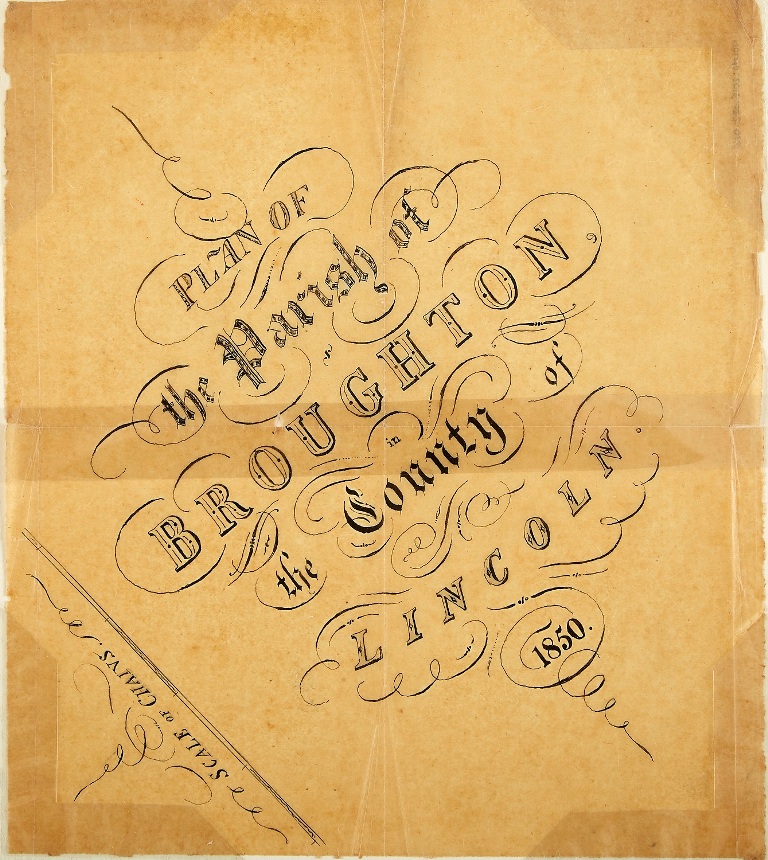 PLAN OF
the Parish of
BROUGHTON,
in
the County of
LINCOLN.
1850.
SCALE OF CHAINS.